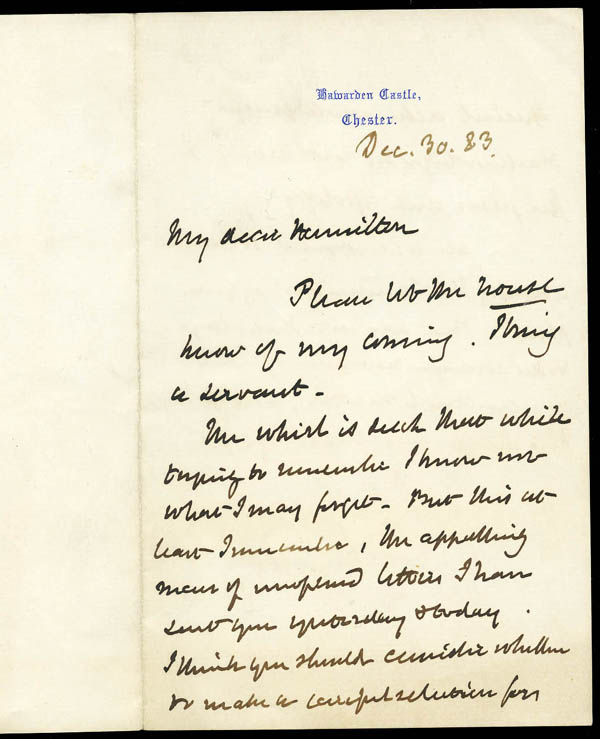 Hawarden Castle,
Chester.
Dec. 30. 83.
My dear Hamilton
Please let the house
know of my coming. I bring
a servant -
The whirl is such that while
trying to remember I know not
what I may forget - But this at
least I remember, the appalling
mass of unopened letters I have
sent you yesterday & today.
I think you should consider whether
to make a careful selection for